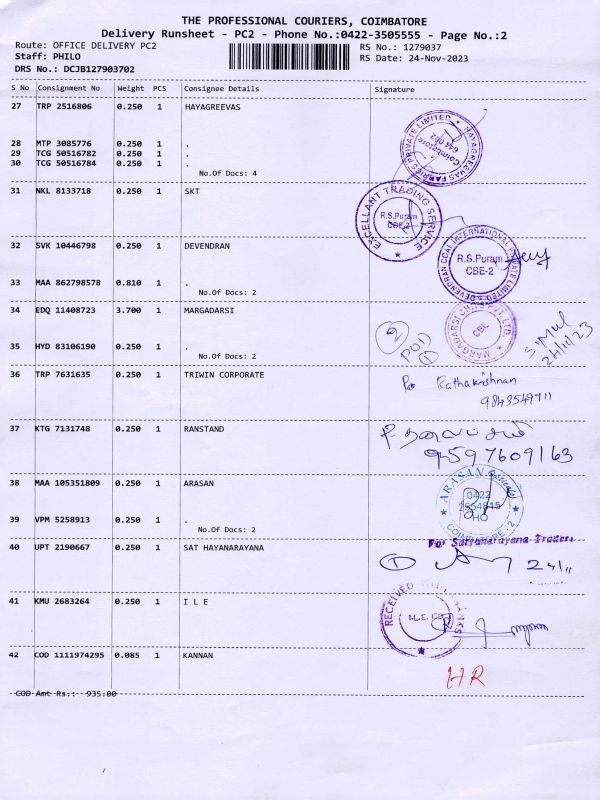 THE PROFESSIONAL COURIERS, COIMBATORE
Delivery Runsheet - PC2 - Phone No.:0422-3505555 - Page No.:2
Route: OFFICE DELIVERY PC2
RS No.: 1279037
Staff: PHILO
RS Date: 24-Nov-2023
DRS No.: DCJB127903702
S No Consignment No Weight PCS Consignee Details Signature
27 TRP 2516806 0.250 1 HAYAGREEVAS
28 MTP 3085776 0.250 1 .
29 TCG 50516782 0.250 1 .
30 TCG 50516784 0.250 1 .
No.Of Docs: 4
Coimbatore
641 002
31 NKL 8133718 0.250 1 SKT
EXCELLANT TRADING SERVICE
R.S.Puram
CBE-2
32 SVK 10446798 0.250 1 DEVENDRAN
R.S.Puram
CBE-2
33 MAA 862798578 0.810 1 .
No.Of Docs: 2
34 EDQ 11408723 3.700 1 MARGADARSI
MARGADARSI CHITS PVT LTD
CBE
2
POD
1
24/11/23
35 HYD 83106190 0.250 1 .
No.Of Docs: 2
36 TRP 7631635 0.250 1 TRIWIN CORPORATE
Kathakrishnan
9843549711
37 KTG 7131748 0.250 1 RANSTAND
9597609163
38 MAA 105351809 0.250 1 ARASAN
ARASAN
0422
HO
COIMBATORE-2
39 VPM 5258913 0.250 1 .
No.Of Docs: 2
40 UPT 2190667 0.250 1 SAT HAYANARAYANA
For Satyanarayana Traders
1
41 KMU 2683264 0.250 1 I L E
RECEIVED WITH THANKS
I.L.E. CO
42 COD 1111974295 0.085 1 KANNAN
HR
COD Amt Rs.: 935.00